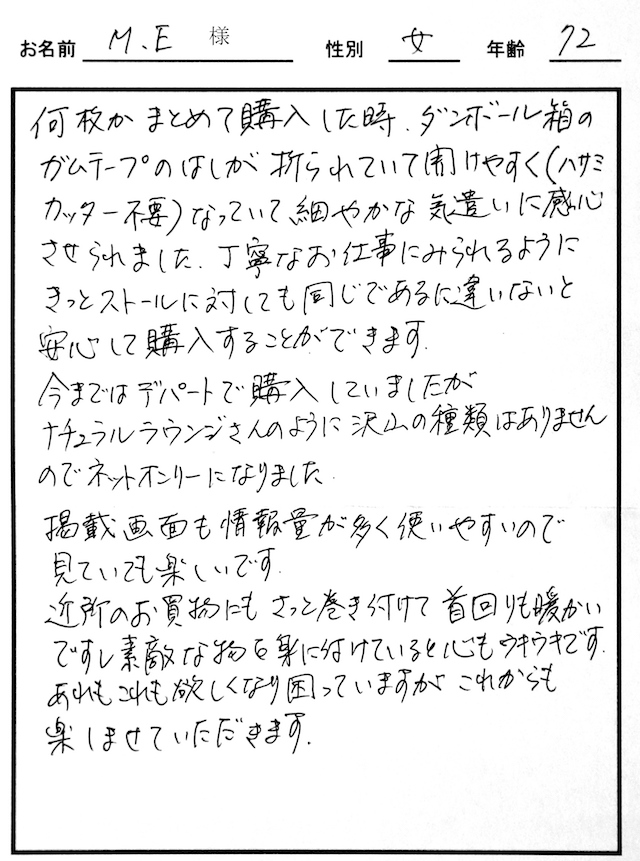 お名前 M.E 様 性別 女 年齢 72
何枚かまとめて購入した時、ダンボール箱の
ガムテープのはしが折られていて開けやすく(ハサミ
カッター不要)なっていて細やかな気遣いに感心
させられました。丁寧なお仕事にみられるように
きっとストールに対しても同じであるに違いないと
安心して購入することができます。
今まではデパートで購入していましたが
ナチュラルラウンジさんのように沢山の種類はありません
のでネットオンリーになりました。
掲載画面も情報量が多く使いやすいので
見ていても楽しいです。
近所のお買物にもさっと巻き付けて首回りも暖かい
ですし素敵な物を身に付けていると心もウキウキです。
あれもこれも欲しくなり困っていますがこれからも
楽しませていただきます。